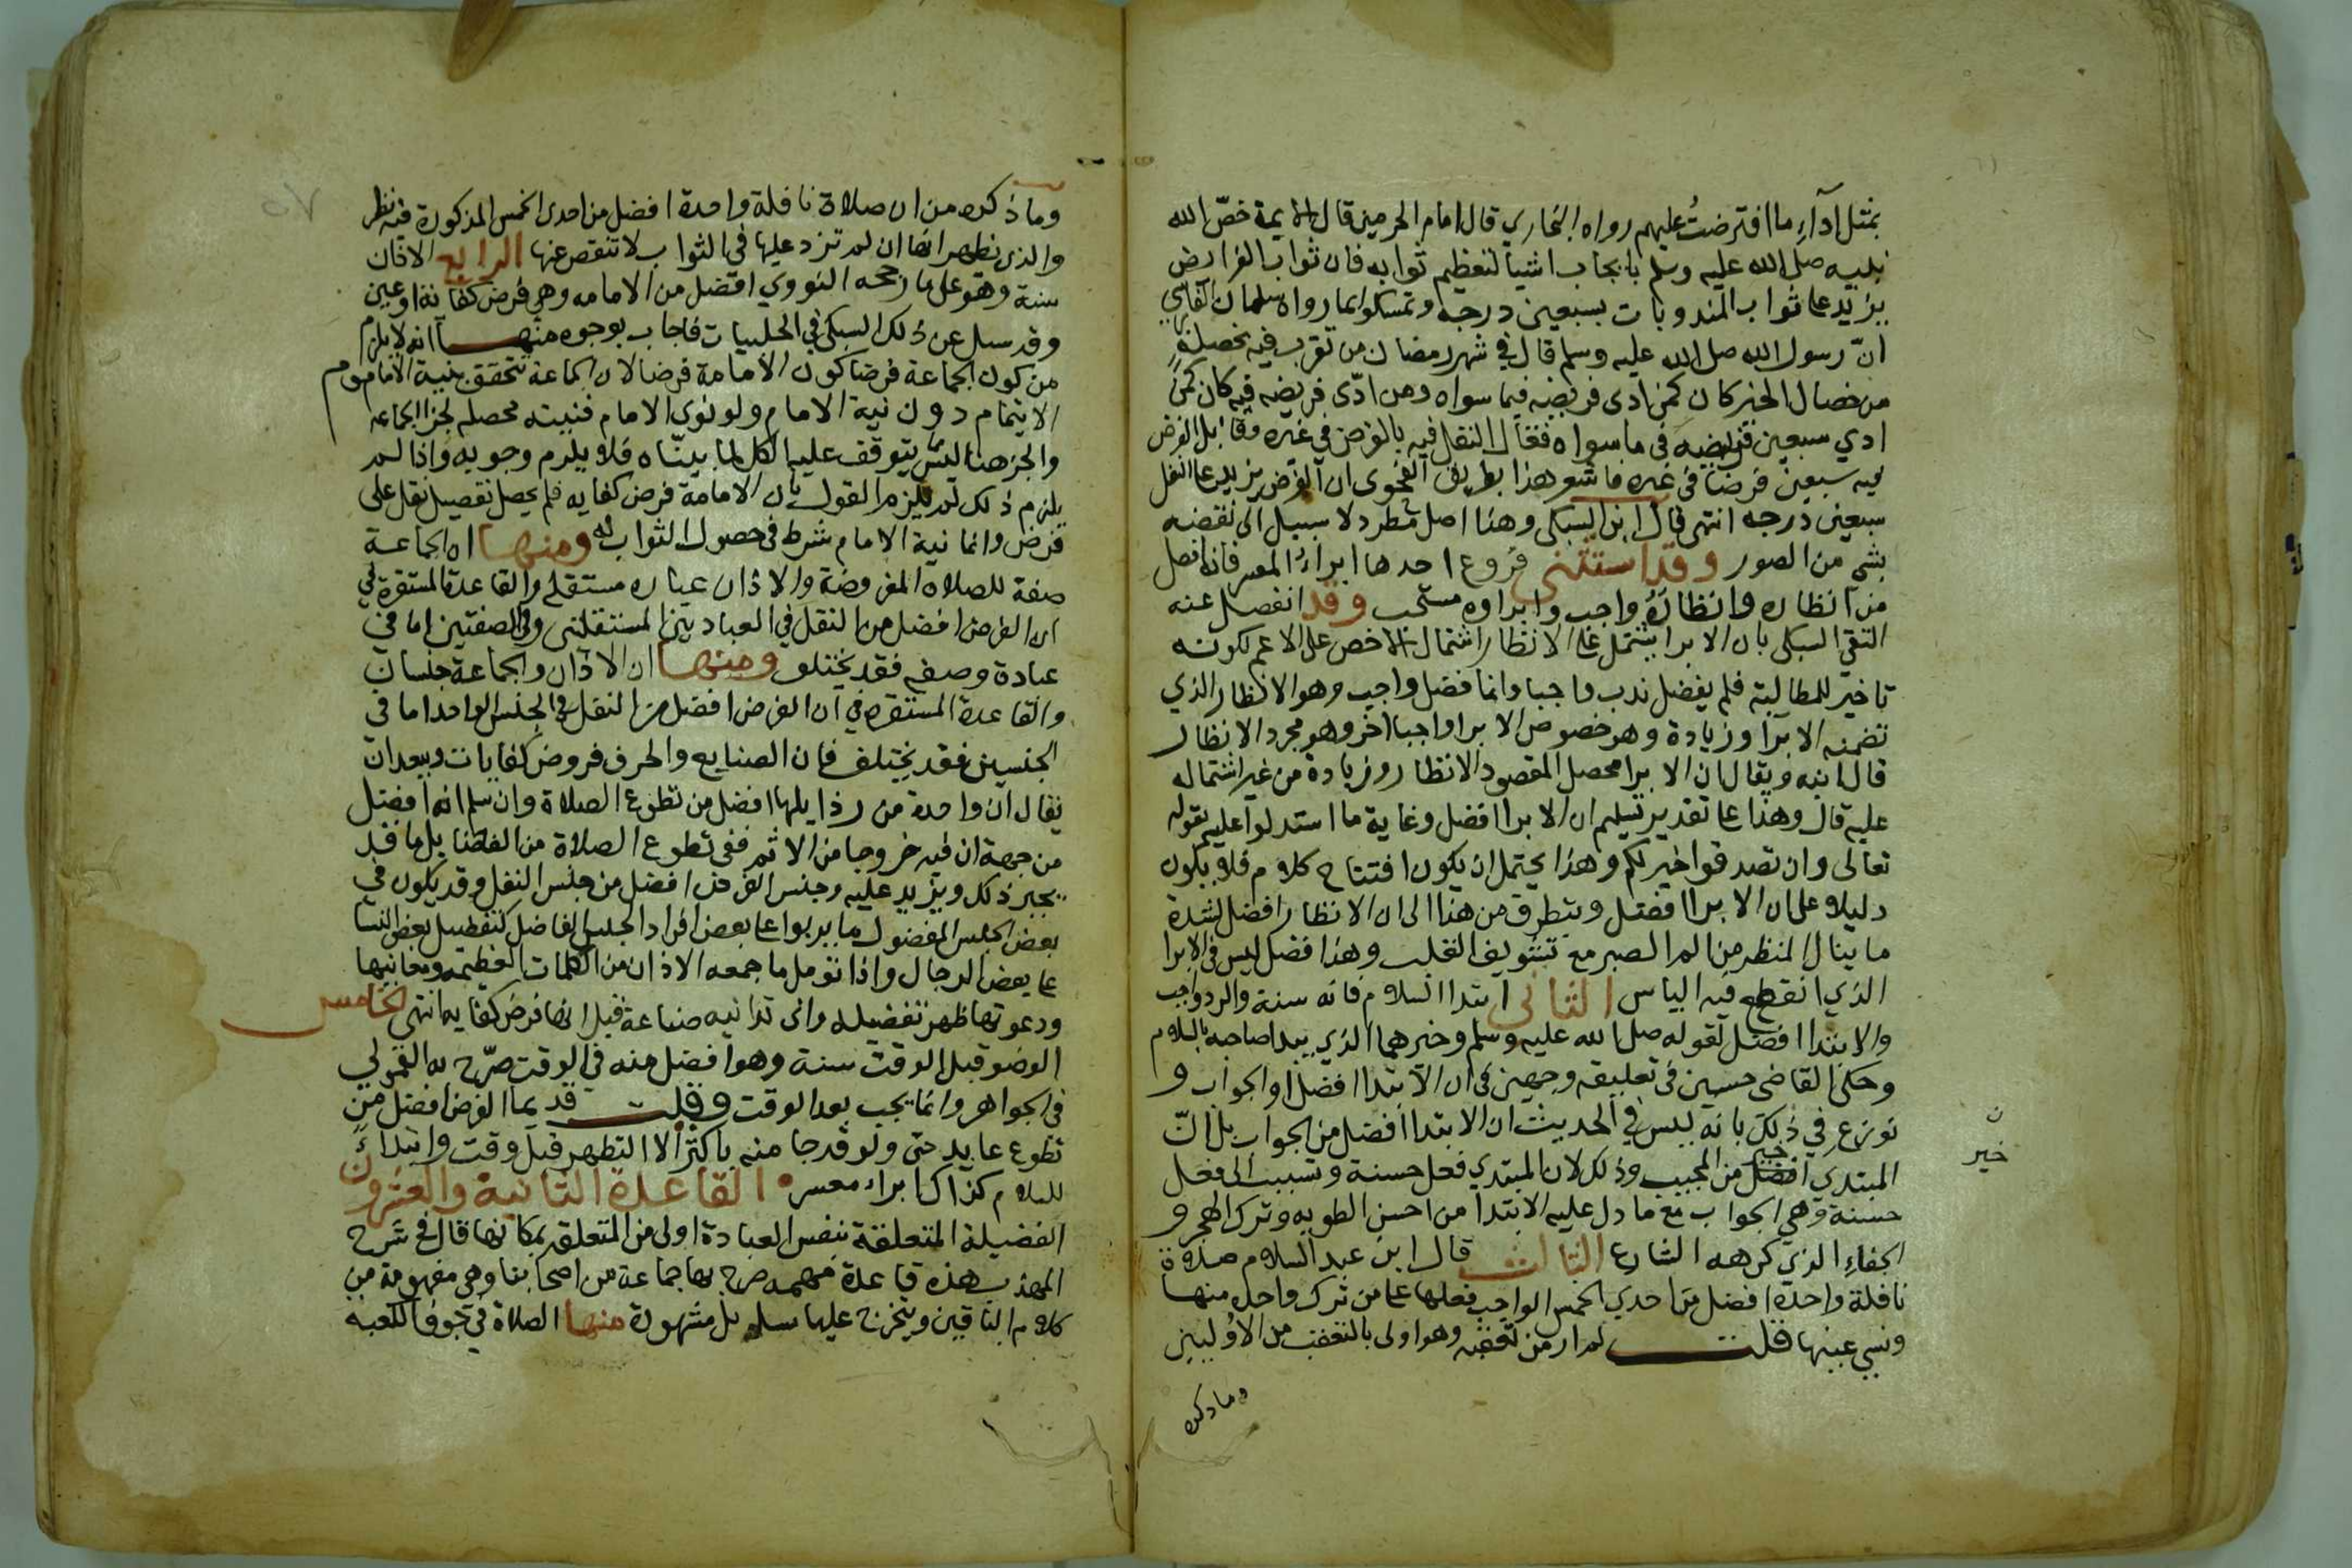 بمثل آداءِ ما افترضتُ عليهم رواه البخاري قال امام الحرمين قال الايمة خصّ الله
نبيه صلى الله عليه وسلم بايجاب اشيا لتعظيم ثوابه فان ثواب الفرايض
يزيد على ثواب المندوبات بسبعين درجة وتمسكوا بما رواه سلمان الفارسي
انّ رسول الله صلى الله عليه وسلم قال في شهر رمضان من تقرب فيه بخصلةٍ
من خصال الخير كان كمن ادى فريضه فيما سواه ومن ادّى فريضه فيه كان كمن
ادي سبعين فريضه في ما سواه فقابل النفل فيه بالفرض في غيره وقابل الفرض
فيه سبعين فرضا في غيره فاشعر هذا بطريق الفحوى ان الفرض يزيد على النفل
سبعين درجه انتهى قال ابن السبكى وهذا اصل مطرد لا سبيل الى نقضه
بشى من الصور وقد استثنى فروع احدها ابراءُ المعسر فانه افضل
من انظاره وانظارهُ واجب وابراوه مستحب وقد انفصل عنه
التقى السبكى بان الابرا يشتمل على الانظار اشتمال الاخص على الاعم لكونه
تاخير للمطالبة فلم يفضل ندب واجبا وانما فضل واجب وهو الانظار الذي
تضمنه الابرآ وزيادة وهو خصوص الابرا واجبا آخر وهو مجرد الانظار
قال ابنه ويقال ان الابرا محصل المقصود الانظار وزيادة من غير اشتماله
عليه قال وهذا على تقدير تسليم ان الابرا افضل وغاية ما استدلوا عليه بقوله
تعالى وان تصدقوا خير لكم وهذا يحتمل ان يكون افتتاح كلام فلا يكون
دليلا على ان الابرا افضل ويتطرق من هذا الى ان الانظار افضل لشدة
ما ينال المنظر من الم الصبر مع تشويف القلب وهذا فضل ليس في الابرا
الذي انقطع فيه الياس الثانى ابتدا السلام فانه سنة والرد واجب
والابتدا افضل لقوله صلى الله عليه وسلم وخيرهما الذي يبدا صاحبه بالسلام
وحكى القاضى حسين في تعليقه وجهين في ان الابتدا افضل او الجواب و
نوزع في ذلك بانه ليس في الحديث ان الابتدا افضل من الجواب بل انّ
ن
خير
المبتدي افضل من المجيب وذلك لان المبتدي فعل حسنة وتسبب الى فعل
حسنة وهي الجواب مع ما دل عليه الابتدا من احسن الطويه وترك الهجر و
الجفاءِ الذي كرهه الشارع الثالث قال ابن عبد السلام صلاة
نافلة واحدة افضل من احدي الخمس الواجب فعلها على من ترك واحدة منها
ونسي عينها قلت لم ار من تعقبه وهو اولى بالتعقب من الاوليين
وما ذكره
وما ذكره من ان صلاة نافلة واحدة افضل من احدى الخمس المذكورة فيه نظر
والذى يظهر انها ان لم تزد عليها في الثواب لا تنقص عنها الرابع الاذان
سنة وهو على ما رجحه النووي افضل من الامامه وهي فرض كفاية او عين
وقد سيل عن ذلك السبكى في الحلبيات فاجاب بوجوه منها انه لا يلزم
من كون الجماعة فرضا كون الامامة فرضا لان الجماعة تتحقق بنية الماموم
الايتمام دون نية الامام ولو نوى الامام فنيته محصله لجزا الجماعه
والجز هنا ليس يتوقف عليه الكل لما بينّاه فلا يلزم وجوبه واذا لم
يلزم ذلك لم يلزم القول بان الامامة فرض كفايه فلم يحصل تفضيل نفل على
فرض وانما نية الامام شرط في حصول الثواب له ومنها ان الجماعة
صفة للصلاة المفروضة والاذان عبادة مستقلة والقاعدة المستقرة في
ان الفرض افضل من النفل في العبادتين المستقلتين وفي الصفتين اما في
عبادة وصفه فقد يختلف ومنها ان الاذان والجماعة جنسان
والقاعدة المستقره في ان الفرض افضل من النفل في الجنس الواحد اما في
الجنسين فقد يختلف فان الصنايع والحرف فروض كفايات ويبعد ان
يقال ان واحدة من رذايلها افضل من تطوع الصلاة وان سلم انه افضل
من جهة ان فيه خروجا من الاثم ففى تطوع الصلاة من الفضايل ما قد
يجبر ذلك ويزيد عليه وجنس الفرض افضل من جنس النفل وقد يكون في
بعض الجنس المفضول ما يربوا على بعض افراد الجنس الفاضل كتفضيل بعض النسا
على بعض الرجال واذا تومل ما جمعه الاذان من الكلمات العظيمه ومعانيها
ودعوتها ظهر تفضيله وانى تدانيه صناعة قيل انها فرض كفايه انتهى الخامس
الوضو قبل الوقت سنة وهو افضل منه في الوقت صرّح به القمولي
في الجواهر وانما يجب بعد الوقت وقلت قديما الفرض افضل من
تطوع عابد حتى ولو قد جا منه باكثر الا التطهر قبل وقت وابتداءً
للسلام كذاك ابراء معسر القاعدة الثانية والعشرون
الفضيلة المتعلقة بنفس العبادة اولى من المتعلقة بمكانها قال في شرح
المهذب هذه قاعدة مهمه صرح بها جماعة من اصحابنا وهي مفهومة من
كلام الباقين ويتخرج عليها مسايل مشهورة منها الصلاة في جوف الكعبة